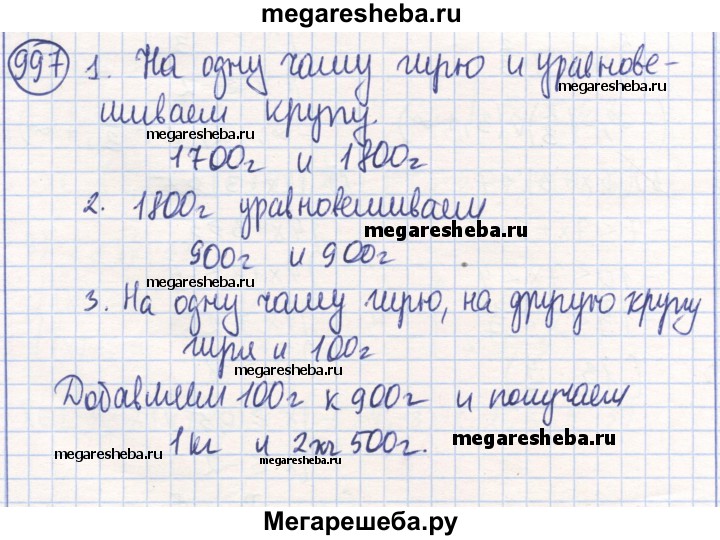 megaresheba.ru
997 1. На одну чашу гирю и уравнове-
megaresheba.ru
шиваем крупу.
megaresheba.ru
1700г и 1800г
2. 1800г уравновешиваем
megaresheba.ru
900г и 900г
megaresheba.ru
3. На одну чашу гирю, на другую крупу
гиря и 100г
megaresheba.ru
Добавляем 100г к 900г и получаем
1кг и 2кг 500г.
megaresheba.ru
megaresheba.ru
megaresheba.ru
Мегарешеба.ру